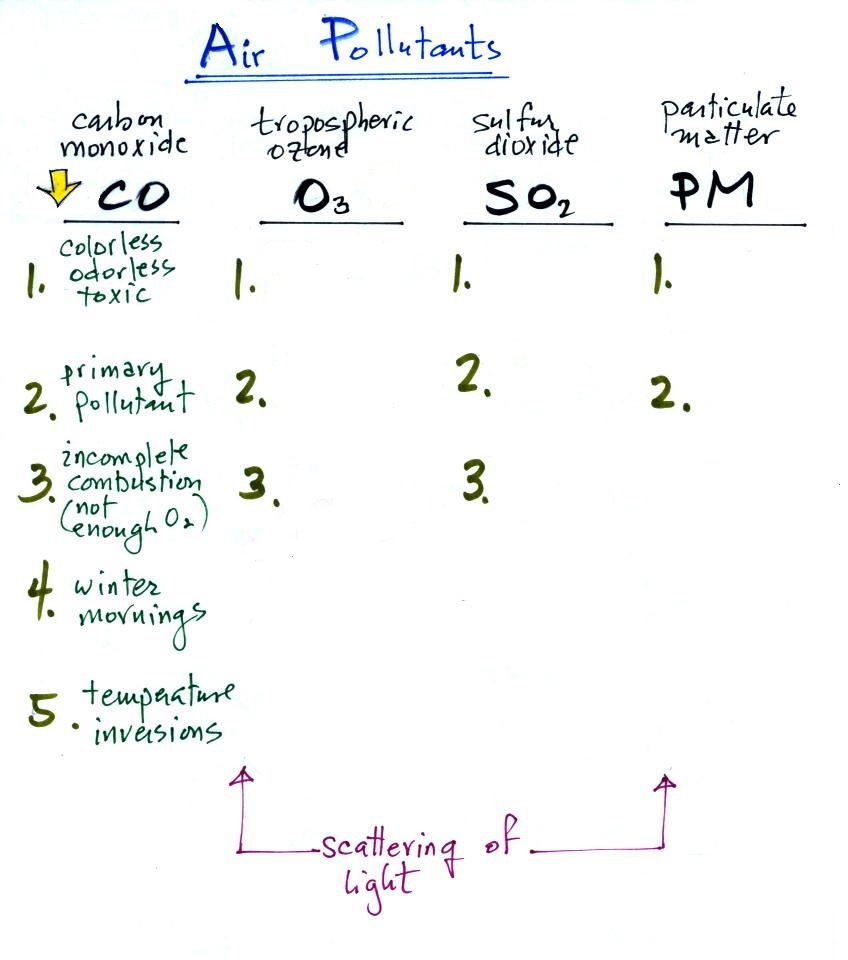 Air Pollutants
carbon
monoxide
CO
1. colorless
odorless
toxic
2. primary
pollutant
3. incomplete
combustion
(not
enough O₂)
4. winter
mornings
5. temperature
inversions
tropospheric
ozone
O₃
1.
2.
3.
sulfur
dioxide
SO₂
1.
2.
3.
particulate
matter
PM
1.
2.
scattering of
light